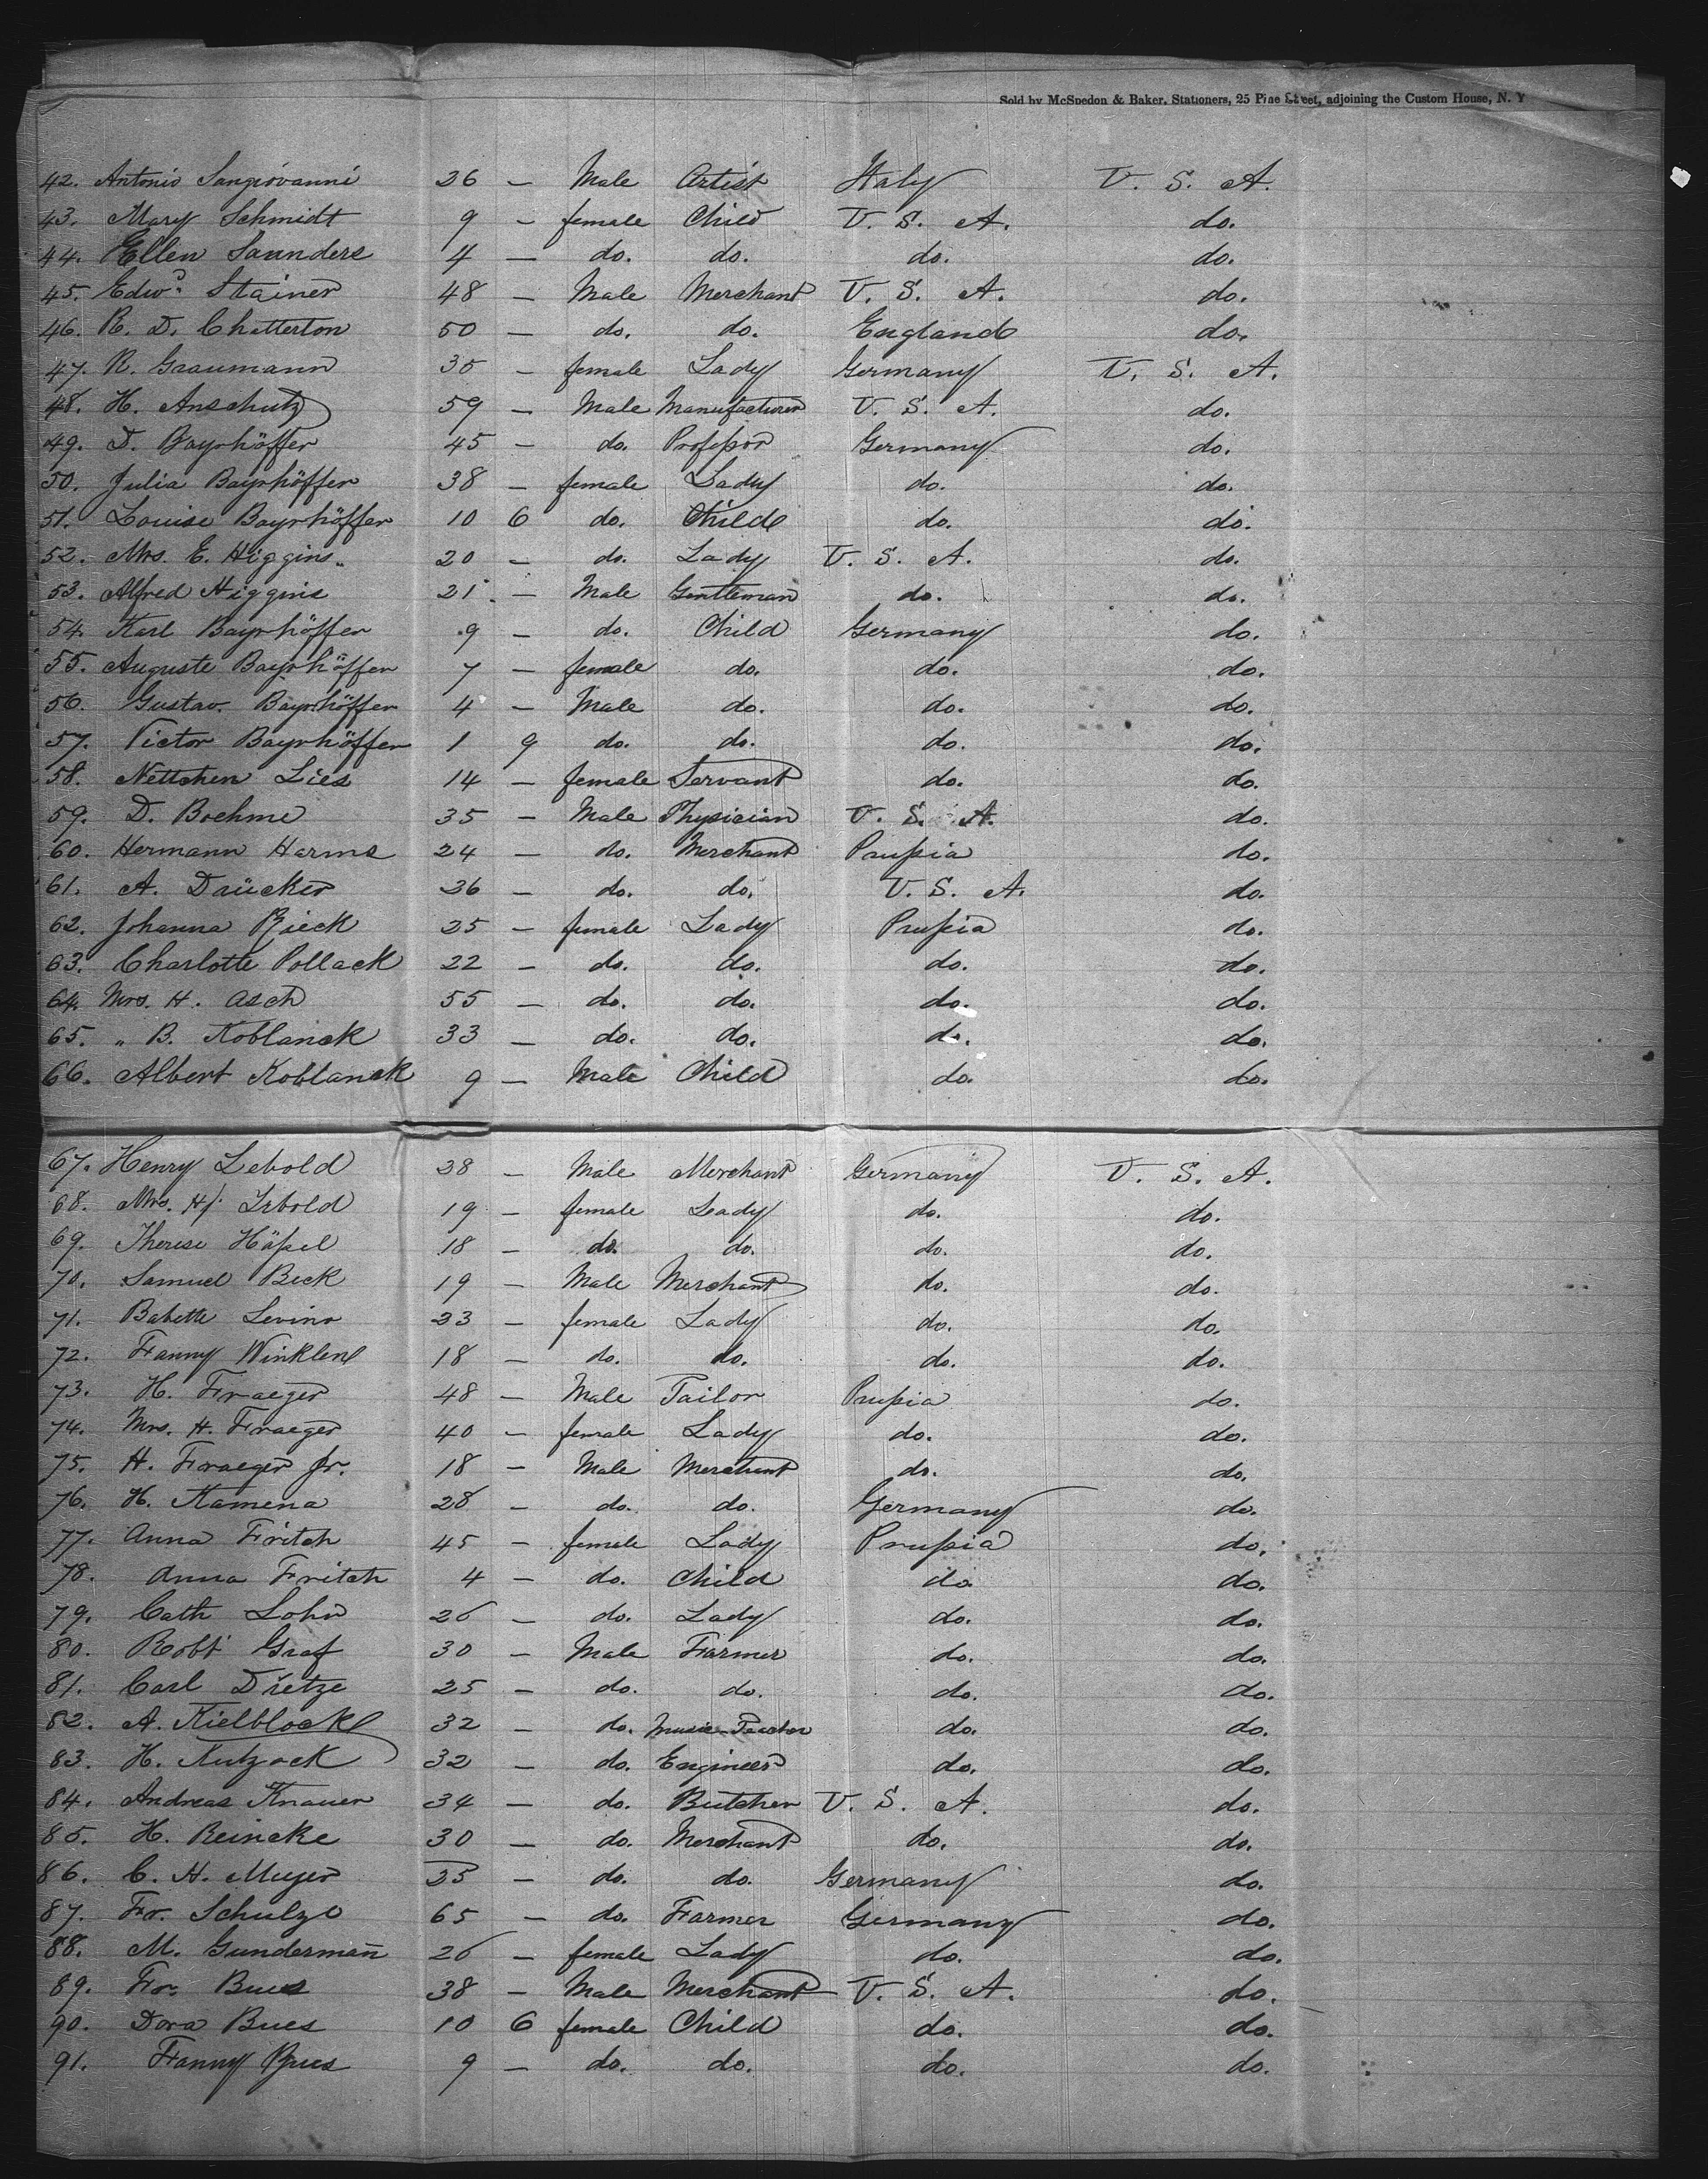 Sold by McSpedon & Baker, Stationers, 25 Pine Street, adjoining the Custom House, N. Y
42. Antonio Sangiovanni 26 — Male Artist Italy U. S. A.
43. Mary Schmidt 9 — female Child U. S. A. do.
44. Ellen Saunders 4 — do. do. do. do.
45. Edwd. Stainer 48 — Male Merchant U. S. A. do.
46. R. D. Chatterton 50 — do. do. England do.
47. R. Graumann 35 — female Lady Germany U. S. A.
48. H. Anschutz 59 — Male Manufacturer U. S. A. do.
49. D. Bayrhöffer 45 — do. Professor Germany do.
50. Julia Bayrhöffer 38 — female Lady do. do.
51. Louise Bayrhöffer 10 6 do. Child do. do.
52. Mrs. E. Higgins 20 — do. Lady U. S. A. do.
53. Alfred Higgins 21 — Male Gentleman do. do.
54. Karl Bayrhöffer 9 — do. Child Germany do.
55. Auguste Bayrhöffer 7 — female do. do. do.
56. Gustav Bayrhöffer 4 — Male do. do. do.
57. Victor Bayrhöffer 1 9 do. do. do. do.
58. Nettchen Lies 14 — female Servant do. do.
59. D. Boehme 35 — Male Physician U. S. A. do.
60. Hermann Harms 24 — do. Merchant Prussia do.
61. A. Drücker 26 — do. do. U. S. A. do.
62. Johanna Rieck 25 — female Lady Prussia do.
63. Charlotte Pollack 22 — do. do. do. do.
64. Mrs. H. Asch 55 — do. do. do. do.
65. " B. Koblanck 33 — do. do. do. do.
66. Albert Koblanck 9 — Male Child do. do.
67. Henry Lebold 28 — Male Merchant Germany U. S. A.
68. Mrs. H. Lebold 19 — female Lady do. do.
69. Therese Hässel 18 — do. do. do. do.
70. Samuel Beck 19 — Male Merchant do. do.
71. Babette Levino 23 — female Lady do. do.
72. Fanny Winkler 18 — do. do. do. do.
73. H. Fraeger 48 — Male Tailor Prussia do.
74. Mrs. H. Fraeger 40 — female Lady do. do.
75. H. Fraeger Jr. 18 — Male Merchant do. do.
76. H. Kamena 28 — do. do. Germany do.
77. Anna Fritch 45 — female Lady Prussia do.
78. Anna Fritch 4 — do. Child do. do.
79. Cath Lohr 26 — do. Lady do. do.
80. Robt Graf 30 — Male Farmer do. do.
81. Carl Dietze 25 — do. do. do. do.
82. A. Kielblock 32 — do. Music-Teacher do. do.
83. H. Kutzock 32 — do. Engineer do. do.
84. Andreas Knauer 34 — do. Butcher U. S. A. do.
85. H. Reincke 30 — do. Merchant do. do.
86. C. H. Meyer 25 — do. do. Germany do.
87. Fr. Schulze 65 — do. Farmer Germany do.
88. M. Gundermañ 26 — female Lady do. do.
89. Fr. Bues 38 — Male Merchant U. S. A. do.
90. Dora Bues 10 6 female Child do. do.
91. Fanny Bues 9 — do. do. do. do.